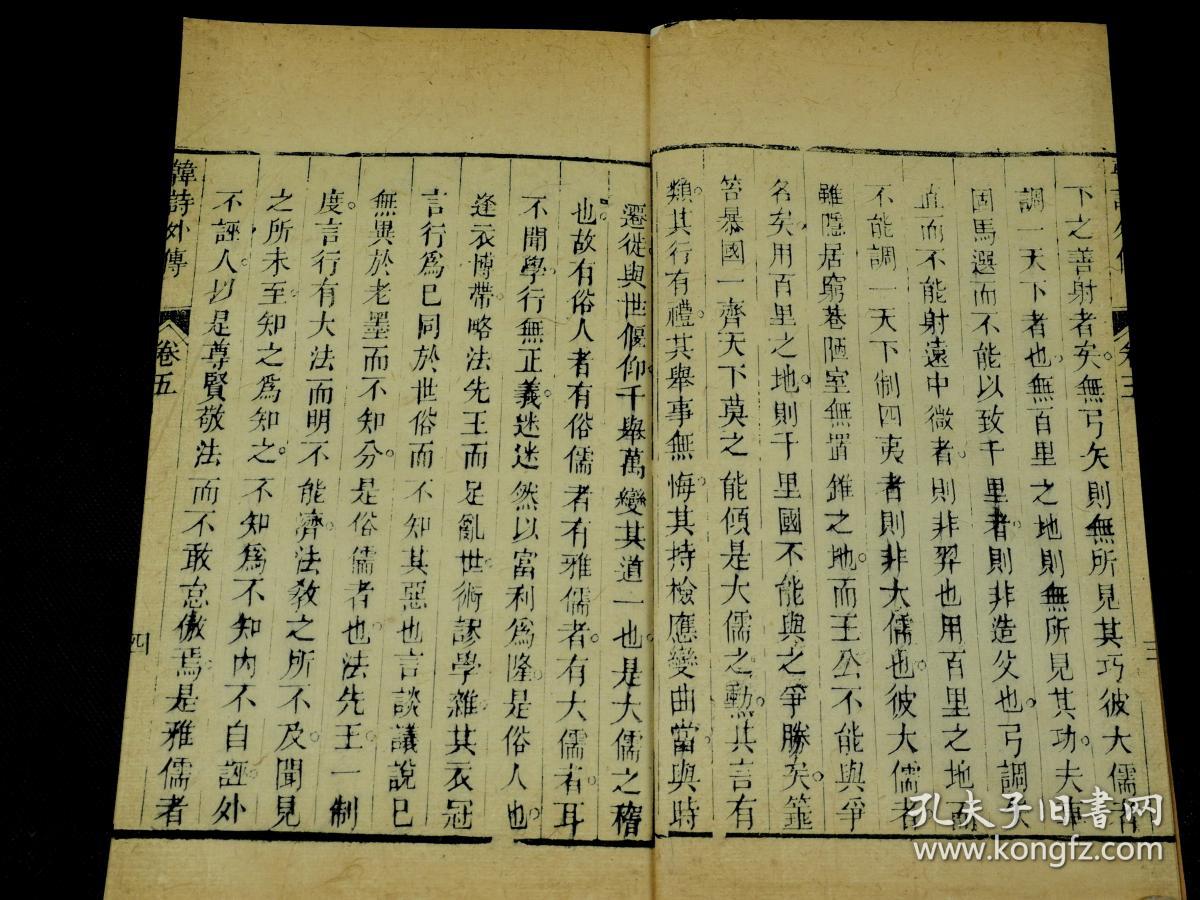 下之善射者矣無弓矢則無所見其巧彼大儒者
調一天下者也無百里之地則無所見其功夫車
固馬選而不能以致千里者則非造父也弓調矢
直而不能射遠中微者則非羿也用百里之地而
不能調一天下制四夷者則非大儒也彼大儒者
雖隱居窮巷陋室無置錐之地而王公不能與爭
名矣用百里之地則千里國不能與之爭勝矣箠
笞暴國一齊天下莫之能傾是大儒之勳其言有
類其行有禮其舉事無悔其持檢應變曲當與時
遷徙與世偃仰千舉萬變其道一也是大儒之稽
也故有俗人者有俗儒者有雅儒者有大儒者耳
不聞學行無正義迷迷然以富利為隆是俗人也
逢衣博帶略法先王而足亂世術謬學雜其衣冠
言行為已同於世俗而不知其惡也言談議說已
無異於老墨而不知分是俗儒者也法先王一制
度言行有大法而明不能濟法教之所不及聞見
之所未至知之為知之不知為不知內不自誣外
不誣人以是尊賢敬法而不敢怠傲焉是雅儒者
韓詩外傳 卷五 四
孔夫子旧書网
www.kongfz.com